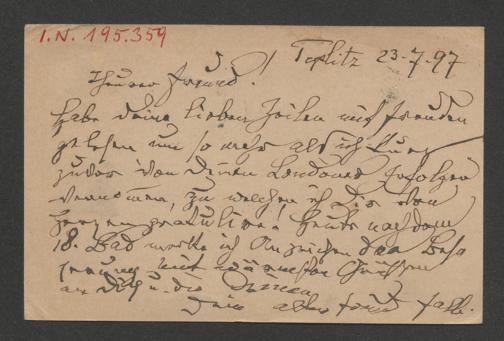 I.N. 195.359
Teplitz 23-7.97
Theurer Freund!
Habe deine lieben Zeilen mit Freuden
gelesen um so mehr als ich kurz
zuvor von deinen Londoner Erfolgen
vernommen, zu welchen ich Dir von
Herzen gratulire. Heute nach dem
18. Bad merke ich Anzeichen der Besse
rung mit wärmsten Grüßen
an Dich u. die Deinen
Dein alter Freund